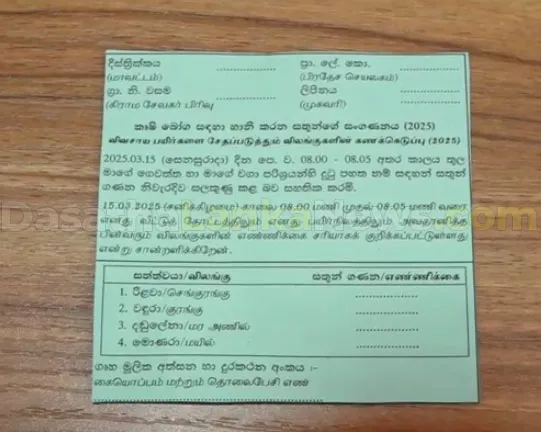 දිස්ත්‍රික්කය ................ ප්‍රා. ලේ. කො. ................
(மாவட்டம்) (பிரதேச செயலகம்)
ග්‍රා. නි. වසම ................ ලිපිනය ................
(கிராம சேவகர் பிரிவு) (முகவரி)
කෘෂි බෝග සඳහා හානි කරන සතුන්ගේ සංගණනය (2025)
விவசாய பயிர்களை சேதப்படுத்தும் விலங்குகளின் கணக்கெடுப்பு (2025)
2025.03.15 (සෙනසුරාදා) දින පෙ. ව. 08.00 - 08.05 අතර කාලය තුල
මාගේ ගෙවත්ත හා මාගේ වගා පරිශ්‍රයන්හි දුටු පහත නම් සඳහන් සතුන්
ගණන නිවැරදිව සලකුණු කළ බව සහතික කරමි.
15.03.2025 (சனிக்கிழமை) காலை 08.00 மணி முதல் 08.05 மணி வரை
எனது வீட்டுத் தோட்டத்திலும் எனது பயிர்நிலத்திலும் அவதானித்த
பின்வரும் விலங்குகளின் எண்ணிக்கை சரியாகக் குறிக்கப்பட்டுள்ளது
என்று சான்றளிக்கிறேன்.
සත්ත්වයා/விலங்கு සතුන් ගණන/எண்ணிக்கை
1. රිළවා/செங்குரங்கு ................
2. වඳුරා/குரங்கு ................
3. දඬුලේනා/மர அணில் ................
4. මොණරා/மயில் ................
ගෘහ මූලික අත්සන හා දුරකථන අංකය :-
கையொப்பம் மற்றும் தொலைபேசி எண்